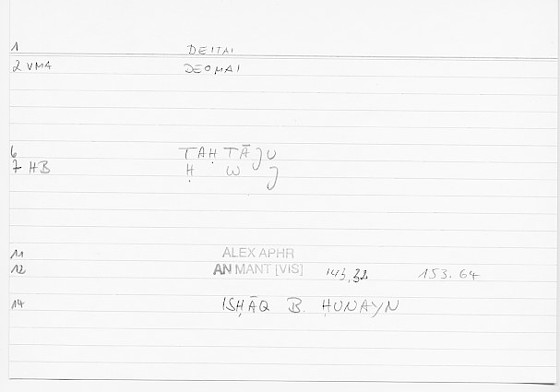 1 DEITAI
2 VM4 DEOMAI
6 TAḤTĀJU
7 HB Ḥ W J
11 ALEX APHR
12 AN MANT [VIS] 143,32 153.64
14 ISḤĀQ B. ḤUNAYN